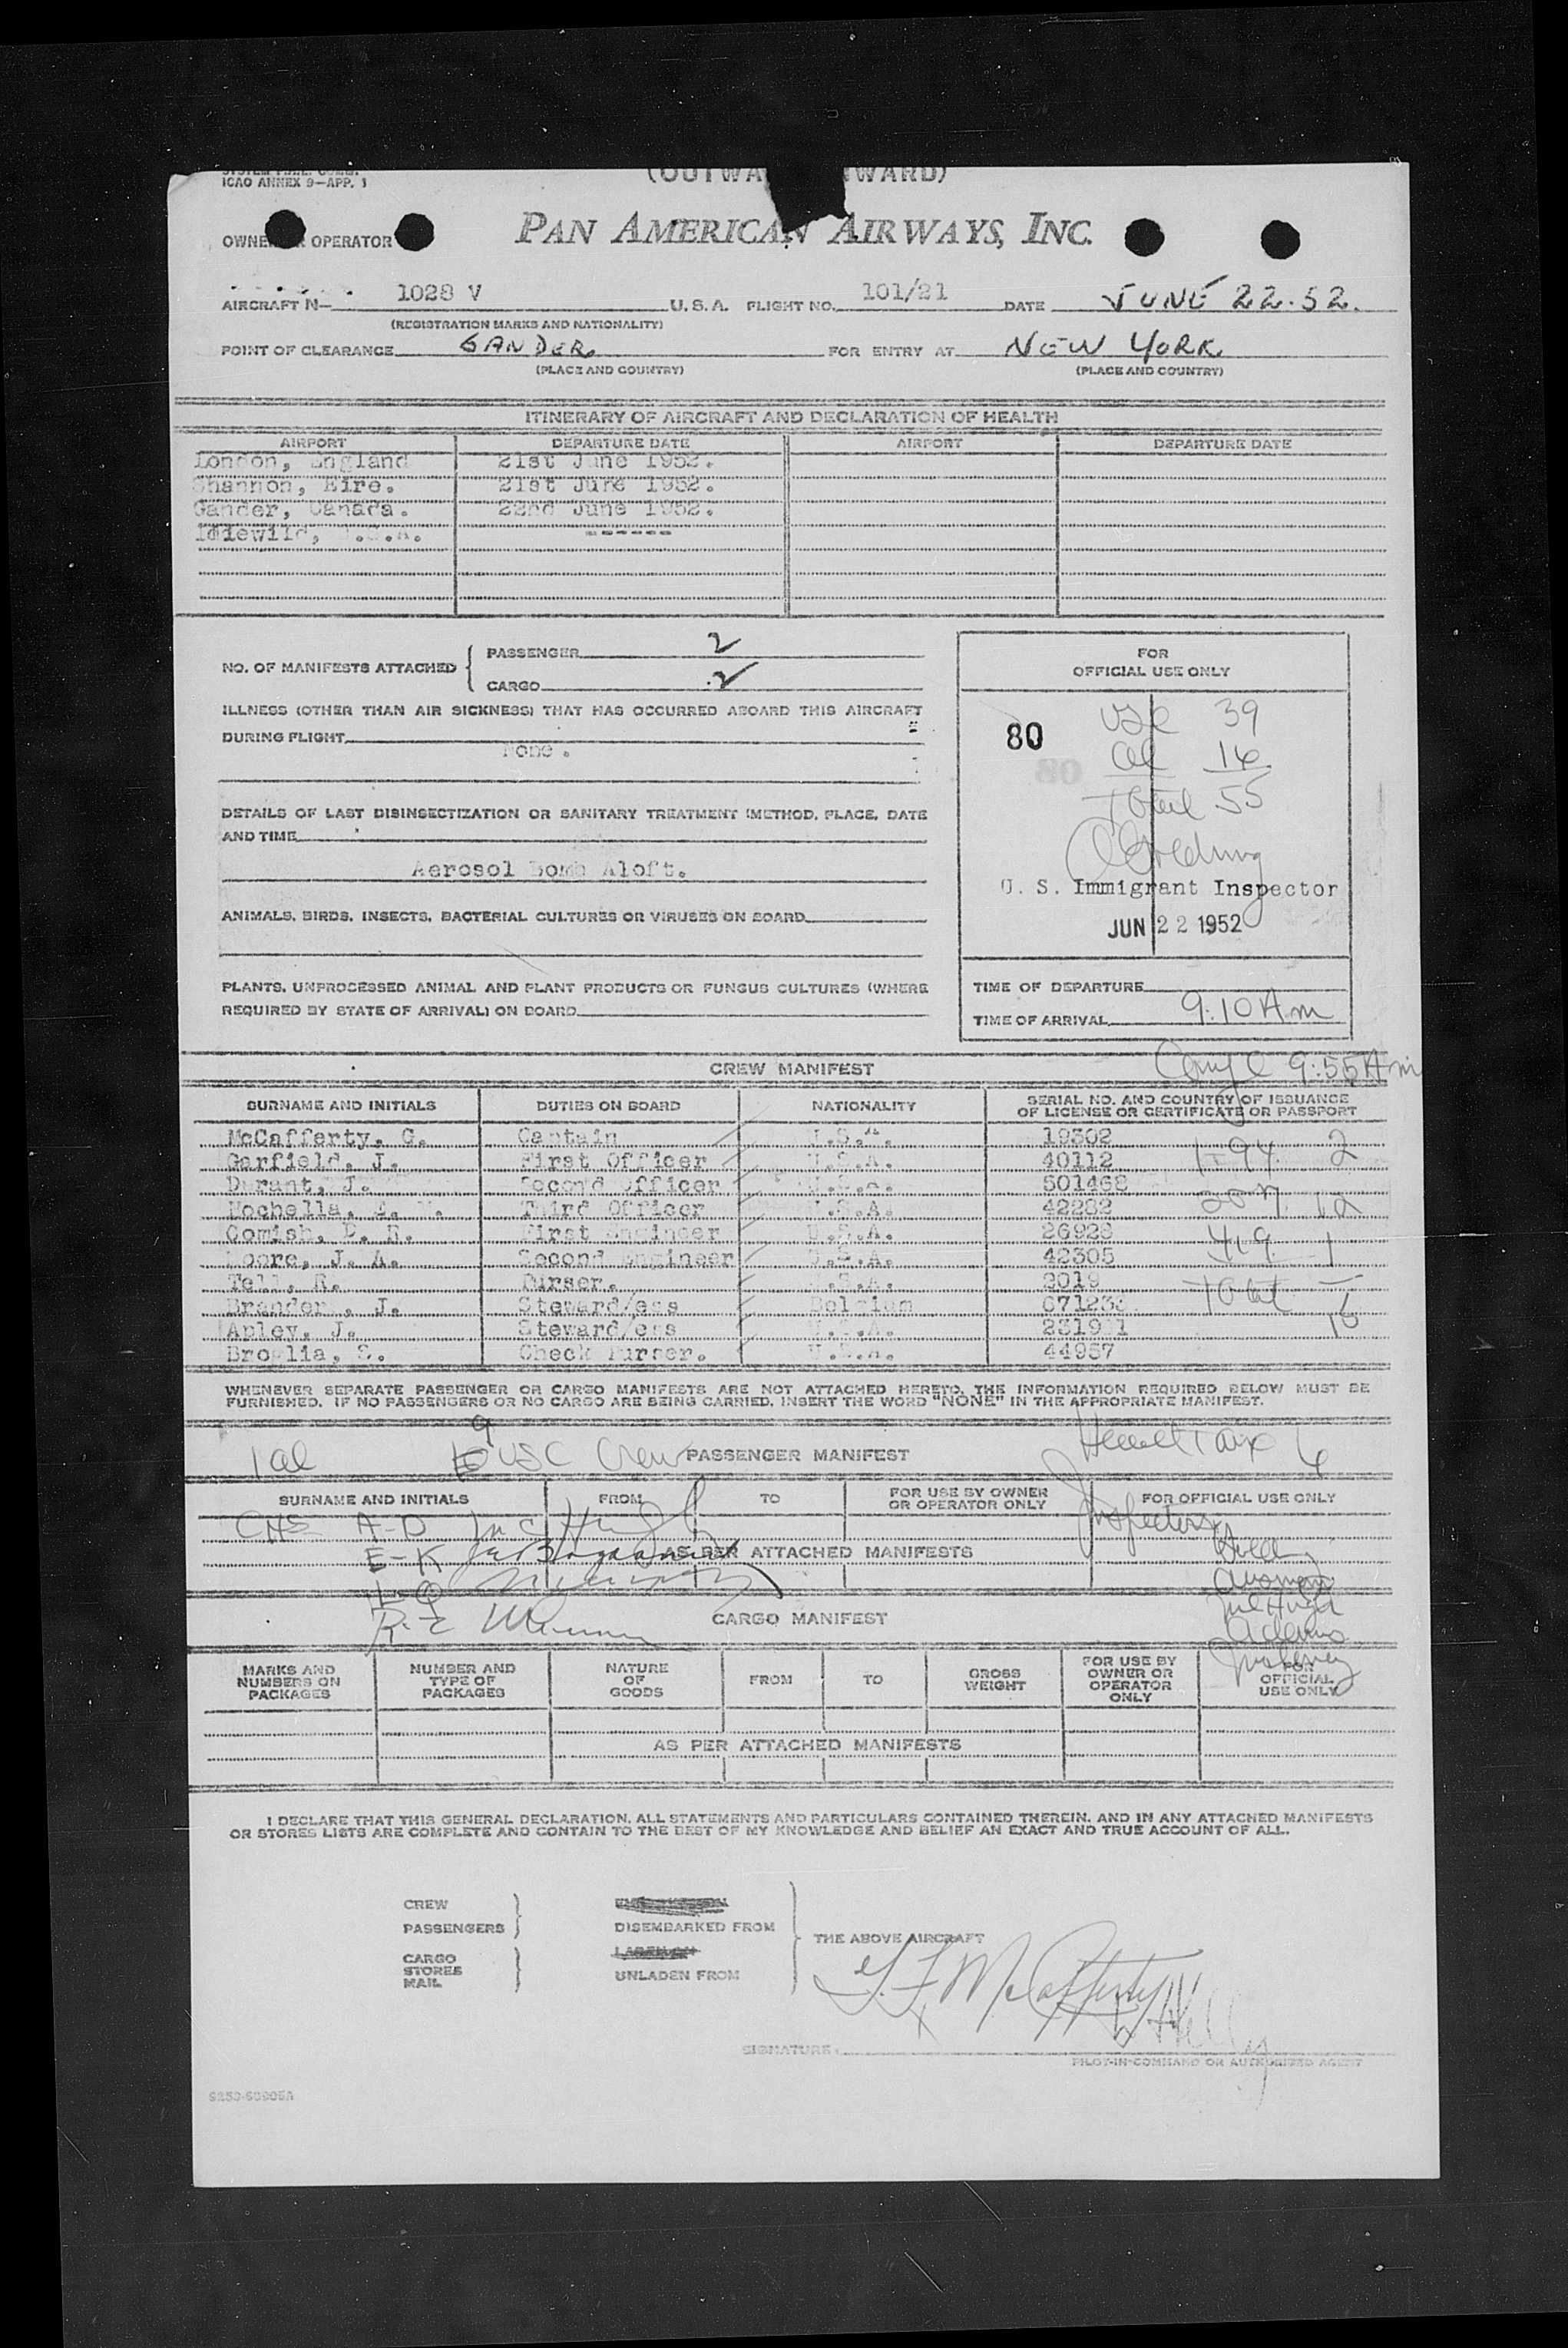 ICAO ANNEX 9—APP. 1
OWNER OPERATOR PAN AMERICAN AIRWAYS, INC.
AIRCRAFT N— 1028 V U.S.A. FLIGHT NO. 101/21 DATE JUNE 22.52.
(REGISTRATION MARKS AND NATIONALITY)
POINT OF CLEARANCE GANDER FOR ENTRY AT NEW YORK
(PLACE AND COUNTRY) (PLACE AND COUNTRY)
ITINERARY OF AIRCRAFT AND DECLARATION OF HEALTH
AIRPORT DEPARTURE DATE AIRPORT DEPARTURE DATE
London, England 21st June 1952.
Shannon, Eire. 21st June 1952.
Gander, Canada. 22nd June 1952.
Idlewild, U.S.A. ------
NO. OF MANIFESTS ATTACHED
PASSENGER 2
CARGO 2
ILLNESS (OTHER THAN AIR SICKNESS) THAT HAS OCCURRED ABOARD THIS AIRCRAFT
DURING FLIGHT
None.
DETAILS OF LAST DISINSECTIZATION OR SANITARY TREATMENT (METHOD, PLACE, DATE
AND TIME
Aerosol Bomb Aloft.
ANIMALS, BIRDS, INSECTS, BACTERIAL CULTURES OR VIRUSES ON BOARD
PLANTS, UNPROCESSED ANIMAL AND PLANT PRODUCTS OR FUNGUS CULTURES (WHERE
REQUIRED BY STATE OF ARRIVAL) ON BOARD
FOR
OFFICIAL USE ONLY
80
USC 39
al 16
Total 55
U. S. Immigrant Inspector
JUN 22 1952
TIME OF DEPARTURE
TIME OF ARRIVAL 9:10 Am
9:55 Am
CREW MANIFEST
SURNAME AND INITIALS DUTIES ON BOARD NATIONALITY SERIAL NO. AND COUNTRY OF ISSUANCE
OF LICENSE OR CERTIFICATE OR PASSPORT
McCafferty, G. Captain U.S.A. 19302
Garfield, J. First Officer U.S.A. 40112 I-94 2
Durant, J. Second Officer U.S.A. 501468
Third Officer U.S.A. 42282 12
Comish, E. R. First Engineer U.S.A. 26928
Moore, J. A. Second Engineer U.S.A. 42305 1
Tell, R. Purser. U.S.A. 2019 Total
J. Steward/ess Belgium
Apley, J. Steward/ess U.S.A.
Broglia, S. Check Purser. U.S.A. 44957
WHENEVER SEPARATE PASSENGER OR CARGO MANIFESTS ARE NOT ATTACHED HERETO, THE INFORMATION REQUIRED BELOW MUST BE
FURNISHED. IF NO PASSENGERS OR NO CARGO ARE BEING CARRIED, INSERT THE WORD "NONE" IN THE APPROPRIATE MANIFEST.
1 al 9 USC Crew PASSENGER MANIFEST Head Tax 6
SURNAME AND INITIALS FROM TO FOR USE BY OWNER
OR OPERATOR ONLY FOR OFFICIAL USE ONLY
A-D Inspectors
E-K AS PER ATTACHED MANIFESTS
L-Q
R-Z CARGO MANIFEST
MARKS AND
NUMBERS ON
PACKAGES
NUMBER AND
TYPE OF
PACKAGES
NATURE
OF
GOODS
FROM
TO
GROSS
WEIGHT
FOR USE BY
OWNER OR
OPERATOR
ONLY
FOR
OFFICIAL
USE ONLY
AS PER ATTACHED MANIFESTS
I DECLARE THAT THIS GENERAL DECLARATION, ALL STATEMENTS AND PARTICULARS CONTAINED THEREIN, AND IN ANY ATTACHED MANIFESTS
OR STORES LISTS ARE COMPLETE AND CONTAIN TO THE BEST OF MY KNOWLEDGE AND BELIEF AN EXACT AND TRUE ACCOUNT OF ALL.
CREW
PASSENGERS DISEMBARKED FROM
THE ABOVE AIRCRAFT
CARGO
STORES
MAIL UNLADEN FROM
G. F. McCafferty
SIGNATURE:
PILOT-IN-COMMAND OR AUTHORIZED AGENT